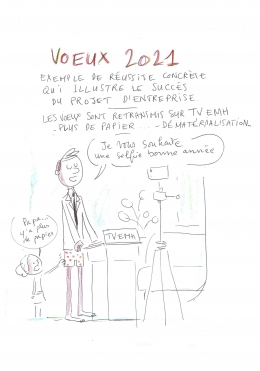 VOEUX 2021
EXEMPLE DE RÉUSSITE CONCRÈTE
QUI ILLUSTRE LE SUCCÈS
DU PROJET D'ENTREPRISE
LES VOEUX SONT RETRANIMIS SUR TV EMH
- PLUS DE PAPIER... - DÉMATÉRIALISATION)
Je vous souhaite
une selfie bonne année
Papa...
y'a plus
de papier
TV EMH